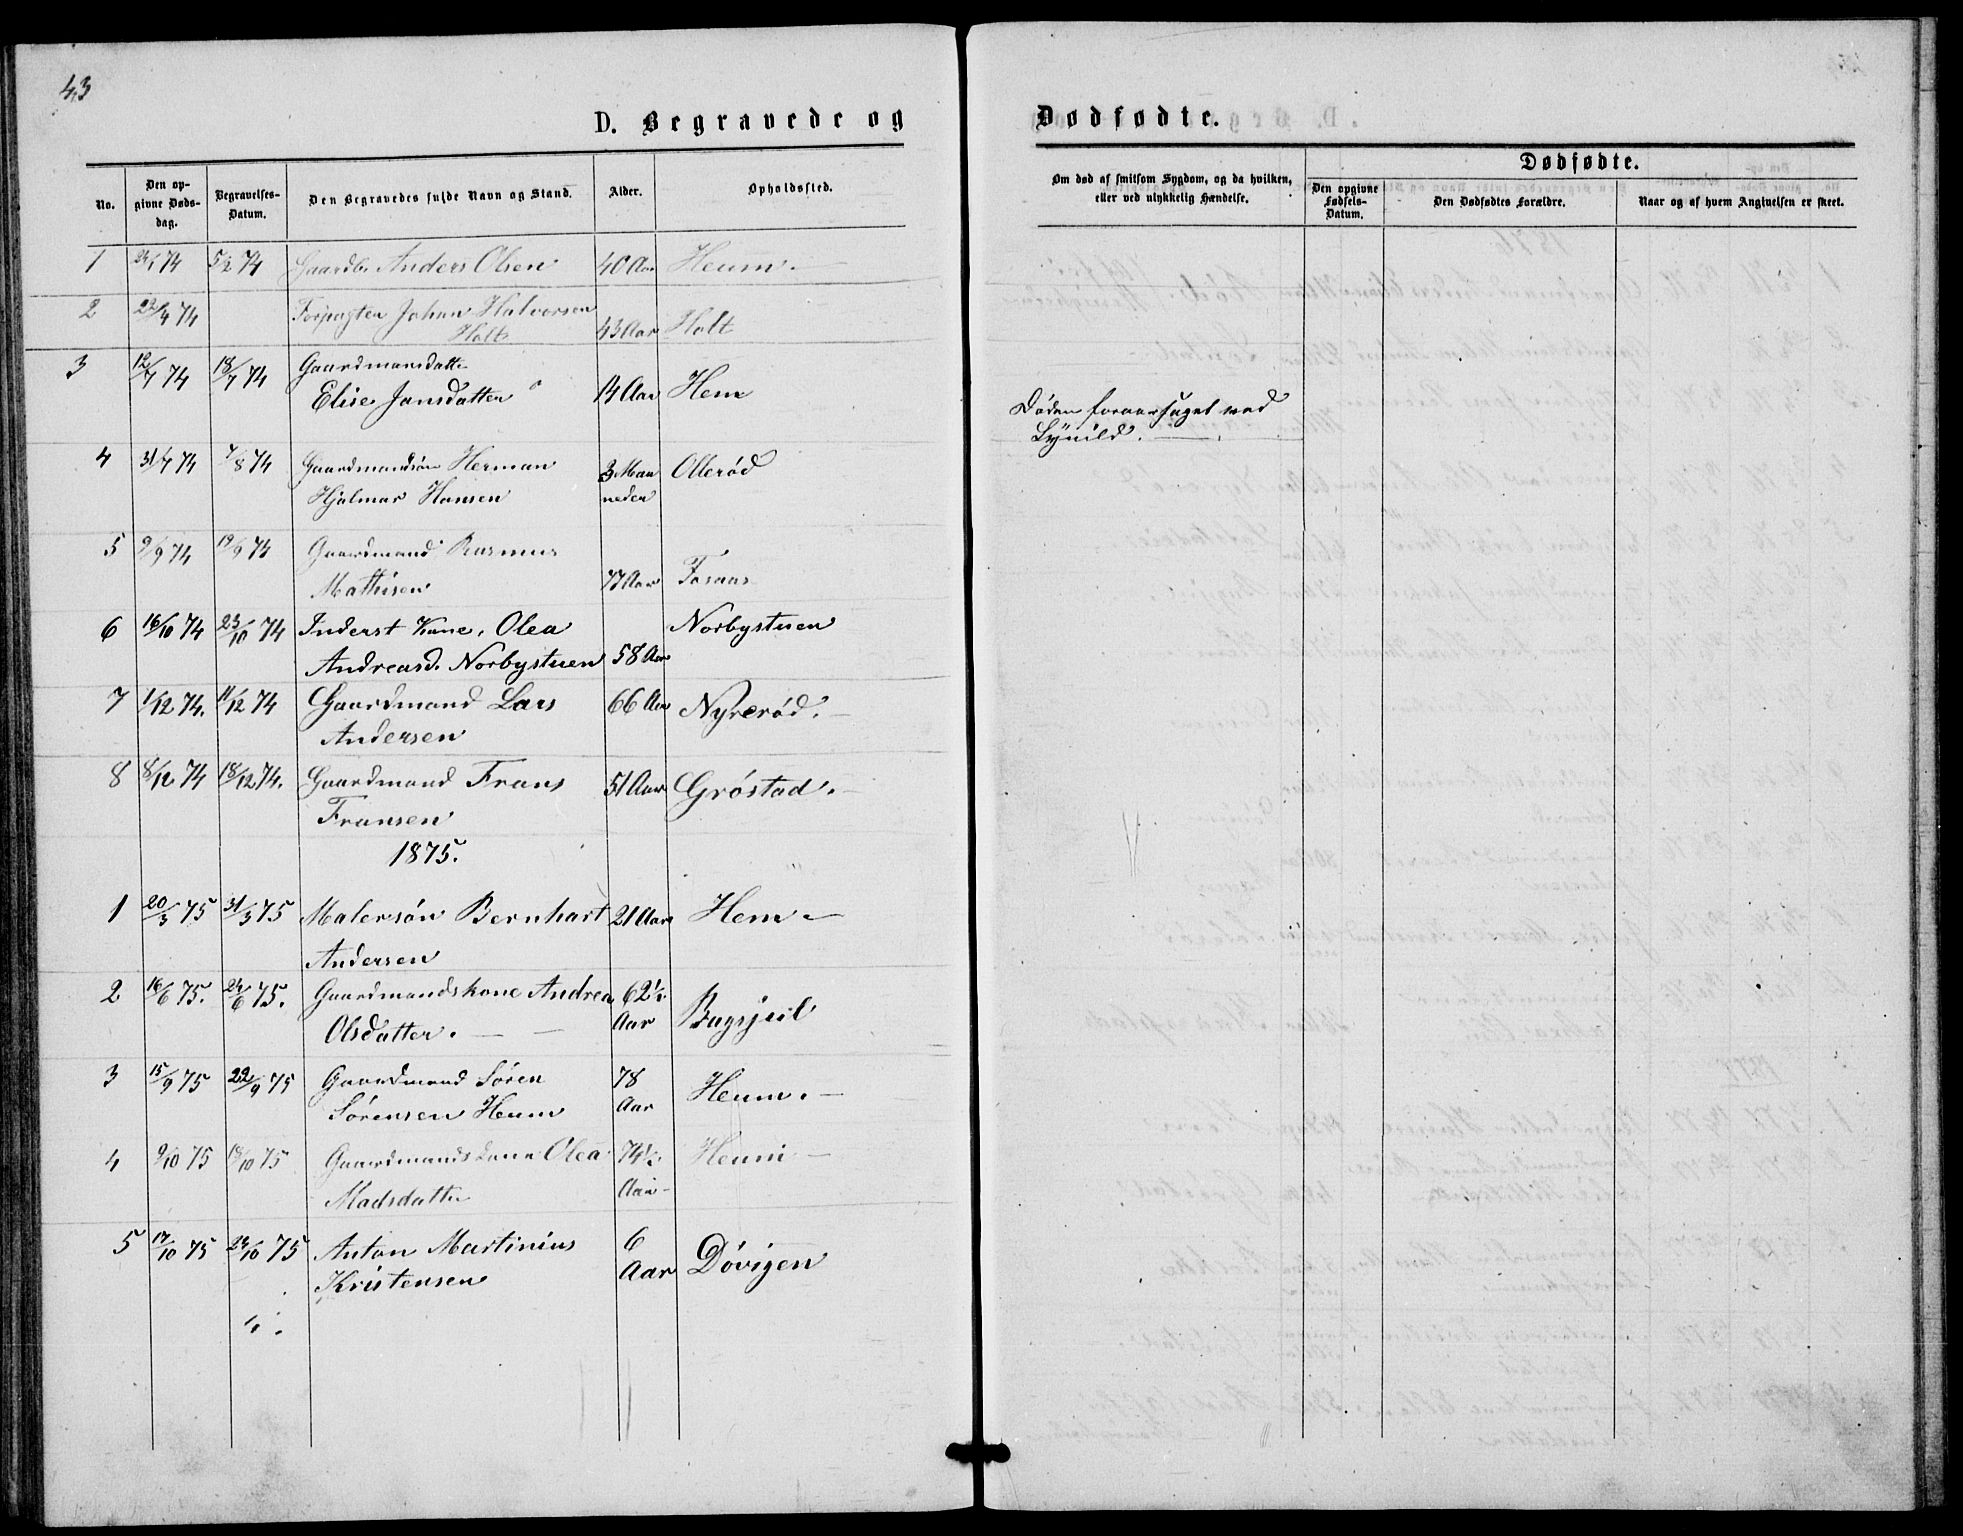 43
D. Begravede og Dødsødte.
No. Den opgivne Dødsdag. Begravelses-Datum. Den Begravedes fulde Navn og Stand. Alder. Opholdssted.
Om død af smitsom Sygdom, og da hvilken, eller ved ulykkelig Hændelse.
Dødfødte.
Den opgivne Fødsels-Datum. Den Dødfødtes Forældre. Naar og af hvem Angivelsen er skeet.
1 74 5/2 74 Gaardb. Anders Olsen 40 Aar Heum.
2 22/4 74 Forpagter Johan Halvorsen
Holt 43 Aar Holt
3 12/7 74 18/7 74 Gaardmansdatte
Elise Jansdatter 14 Aar Hem
Døden foraarsaget ved
Lynild.
4 31/7 74 7/8 74 Gaardmandsön Herman 3 Maa Ollerød
Hjalmar Hansen neder
5 9/9 74 19/9 74 Gaardmand Rasmus
Mathisen 77 Aar Fosaas
6 16/10 74 23/10 74 Inderst Kone, Olea Norbystuen
Andreasd. Norbystuen 58 Aar
7 1/12 74. 11/12 74 Gaardmand Lars 66 Aar Nyrerød.
Andersen
8 8/12 74 18/12 74. Gaardmand Frans 51 Aar Gröstad.
Fransen
1875.
1 20/3 75 31/3 75 Malersön Bernhart 21 Aar Hem
Andersen
2 16/6 75. 24/6 75. Gaardmandskone Andrea 62½
Olsdatter. Aar Bagsjeil
3 15/9 75 22/9 75 Gaardmand Sören 78 Heum.
Sörensen Heum Aar
4 9/10 75 18/10 75 Gaardmands kone Olea 74½ Heum
Madsdatter Aar
5 17/10 75 24/10 75 Anton Martinius 6 Dövigen
Kristensen Aar